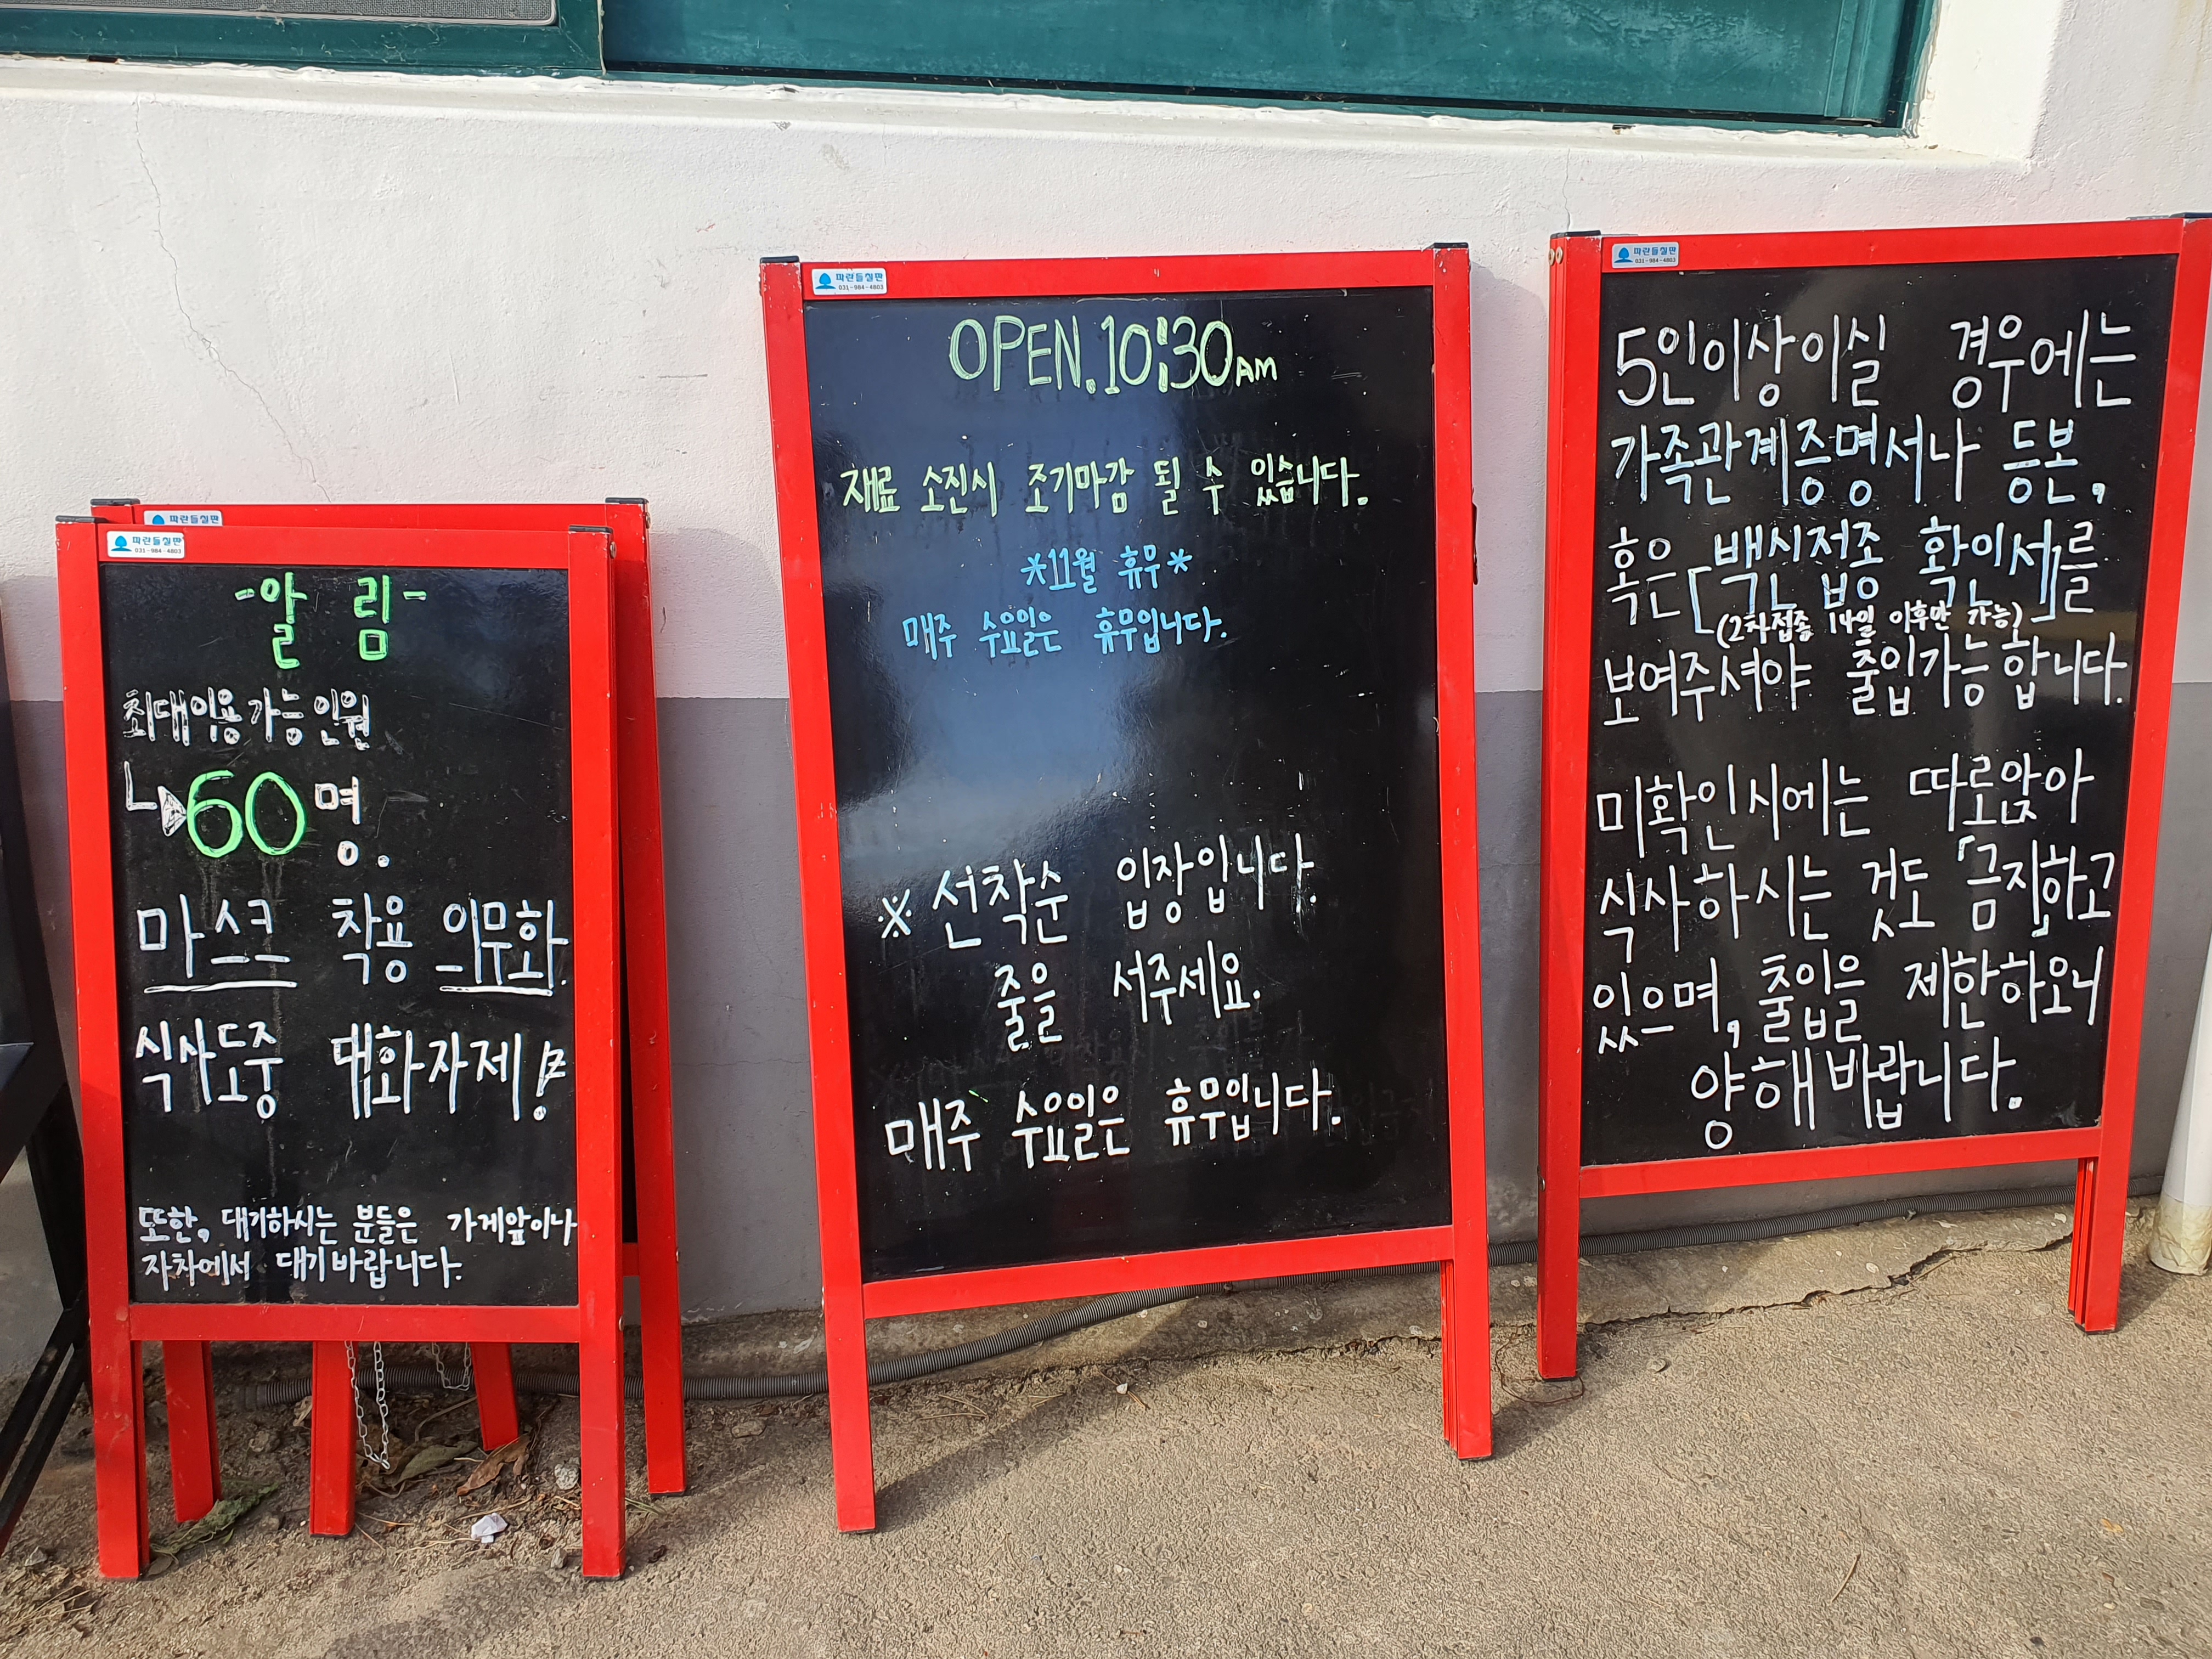 파란들칠판
파란들칠판
031-984-4803
-알 림-
최대이용가능인원
60명.
마스크 착용 의무화.
식사도중 대화자제!
또한, 대기하시는 분들은 가게앞이나
자차에서 대기바랍니다.
파란들칠판
031-984-4803
OPEN.10:30AM
재료 소진시 조기마감 될 수 있습니다.
*11월 휴무*
매주 수요일은 휴무입니다.
※ 선착순 입장입니다.
줄을 서주세요.
매주 수요일은 휴무입니다.
파란들칠판
031-984-4803
5인이상이실 경우에는
가족관계증명서나 등본,
혹은 [백신접종 확인서]를
(2차접종 14일 이후만 가능)
보여주셔야 출입가능합니다.
미확인시에는 따로앉아
식사하시는 것도 「금지」하고
있으며, 출입을 제한하오니
양해바랍니다.